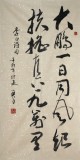 大鹏一日同风起
扶摇直上九万里